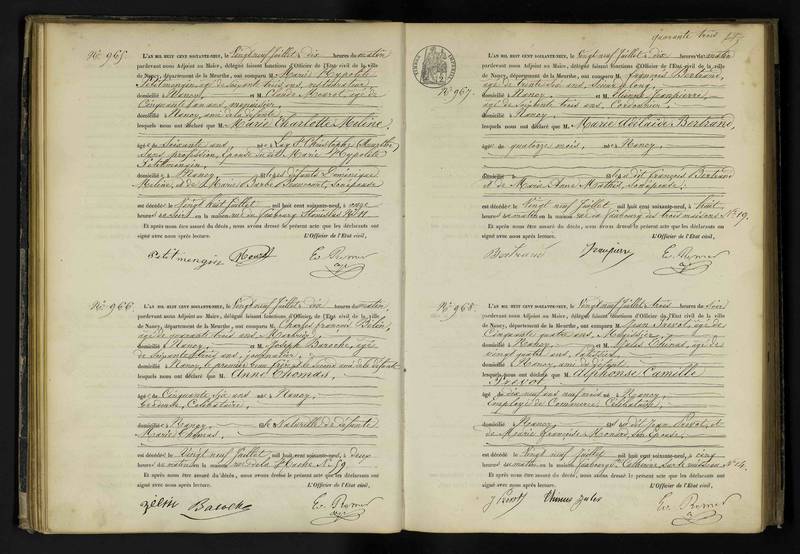 Nº 965.
L'AN MIL HUIT CENT SOIXANTE-NEUF, le Vingt neuf Juillet dix heures du matin
pardevant nous Adjoint au Maire, délégué faisant fonctions d'Officier de l'Etat civil de la ville
de Nancy, département de la Meurthe, ont comparu M. Marie Hypolite
Petitmengin, âgé de soixante trois ans,
domicilié à Nancy et M. Claude Mourot, âgé de
Cinquante un ans, menuisier,
domicilié à Nancy, ami de la défunte
lesquels nous ont déclaré que M. Marie Charlotte Meline,
âgée de Soixante ans, née à Lay St Christophe (Meurthe)
sans profession, épouse du dit Marie Hypolite
Petitmengin,
domiciliée à Nancy fille des défunts Dominique
Meline, et de Marie Barbe, son épouse
est décédée le Vingt huit Juillet mil huit cent soixante-neuf, à onze
heures du soir en la maison rue du faubourg Stanislas Nº 11
Et après nous être assuré du décès, nous avons dressé le présent acte que les déclarants ont
signé avec nous après lecture. L'Officier de l'Etat civil,
Petitmengin
Nº 966.
L'AN MIL HUIT CENT SOIXANTE-NEUF, le Vingt neuf Juillet dix heures du matin
pardevant nous Adjoint au Maire, délégué faisant fonctions d'Officier de l'Etat civil de la ville
de Nancy, département de la Meurthe, ont comparu M. Charles François
âgé de quarante trois ans
domicilié à Nancy et M. Joseph Baroche, âgé
de Soixante trois ans, journalier,
domicilié à Nancy, le premier beau frère, le second ami de la défunte
lesquels nous ont déclaré que M. Anne Thomas,
âgée de Cinquante six ans née à Nancy
Célibataire,
domiciliée à Nancy fille naturelle de défunte
Marie Thomas,
est décédée le Vingt neuf Juillet mil huit cent soixante-neuf, à deux
heures du matin en la maison Nº 59
Et après nous être assuré du décès, nous avons dressé le présent acte que les déclarants ont
signé avec nous après lecture. L'Officier de l'Etat civil,
quarante trois
Nº 967.
L'AN MIL HUIT CENT SOIXANTE-NEUF, le Vingt neuf Juillet dix heures du matin
pardevant nous Adjoint au Maire, délégué faisant fonctions d'Officier de l'Etat civil de la ville
de Nancy, département de la Meurthe, ont comparu M. François Bertrand,
âgé de trente six ans,
domicilié à Nancy et M. Etienne Jeanpierre,
âgé de soixante trois ans, Cordonnier,
domicilié à Nancy
lesquels nous ont déclaré que M. Marie Adélaïde Bertrand,
âgée de quatorze mois, née à Nancy
domicilié à fille du dit François Bertrand
et de Marie Anne Mathis, son épouse,
est décédée le Vingt neuf Juillet mil huit cent soixante-neuf, à huit
heures du matin en la maison rue du faubourg des trois maisons Nº 19.
Et après nous être assuré du décès, nous avons dressé le présent acte que les déclarants ont
signé avec nous après lecture. L'Officier de l'Etat civil,
Bertrand Jeanpierre
Nº 968.
L'AN MIL HUIT CENT SOIXANTE-NEUF, le Vingt neuf Juillet trois heures du soir
pardevant nous Adjoint au Maire, délégué faisant fonctions d'Officier de l'Etat civil de la ville
de Nancy, département de la Meurthe, ont comparu M. Jean Prevot, âgé de
Cinquante quatre ans,
domicilié à Nancy et M. âgé de
vingt quatre ans,
domicilié à Nancy, ami du défunt
lesquels nous ont déclaré que M. Alphonse Camille
Prevot
âgé de dix neuf ans neuf mois né à Nancy
Employé de Commerce, Célibataire,
domicilié à Nancy fils du dit Jean Prevot, et
de Marie Françoise son épouse
est décédé le Vingt neuf Juillet mil huit cent soixante-neuf, à cinq
heures du matin en la maison faubourg Ste Catherine, Nº 14.
Et après nous être assuré du décès, nous avons dressé le présent acte que les déclarants ont
signé avec nous après lecture. L'Officier de l'Etat civil,
J Prevot